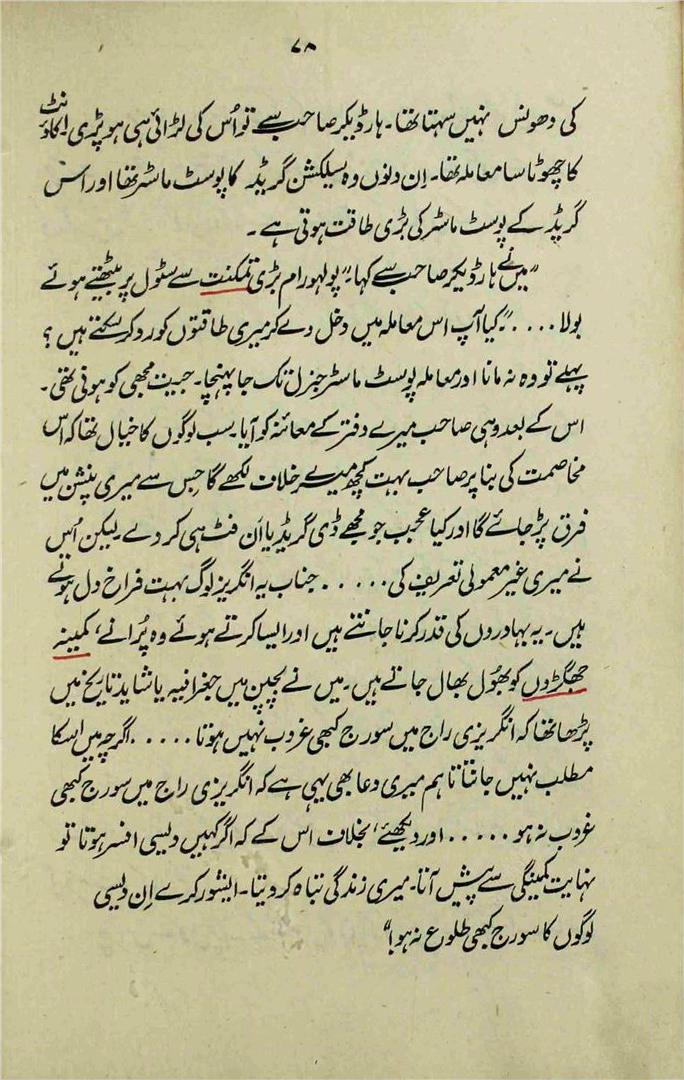 ۷۸
کی دھونس نہیں سہتا تھا۔ ہارڈیکر صاحب سے تو اُس کی لڑائی ہی ہو پڑی اکاؤنٹ
کا چھوٹا سا معاملہ تھا۔ اِن دنوں وہ سیلکشن گریڈ کا پوسٹ ماسٹر تھا اور اس
گریڈ کے پوسٹ ماسٹر کی بڑی طاقت ہوتی ہے۔
”میں نے ہارڈیکر صاحب سے کہا۔“ پولہو رام بڑی تمکنت سے سٹول پر بیٹھتے ہوئے
بولا ....”کیا آپ اس معاملہ میں دخل دے کر میری طاقتوں کو روک سکتے ہیں؟
پہلے تو وہ نہ مانا اور معاملہ پوسٹ ماسٹر جنرل تک جا پہنچا۔ جیت مجھی کو ہونی تھی۔
اس کے بعد وہی صاحب میرے دفتر کے معائنہ کو آیا۔ سب لوگوں کا خیال تھا کہ اس
مخاصمت کی بنا پر صاحب بہت کچھ میرے خلاف لکھے گا جس سے میری پنشن میں
فرق پڑ جائے گا اور کیا عجب جو مجھے ڈی گریڈ یا اَن فٹ ہی کر دے۔ لیکن اُس
نے میری غیر معمولی تعریف کی ..... جناب یہ انگریز لوگ بہت فراخ دل ہوتے
ہیں۔ یہ بہادروں کی قدر کرنا جانتے ہیں اور ایسا کرتے ہوئے وہ پُرانے، کمینہ
جھگڑوں کو بھُول بھال جاتے ہیں۔ میں نے بچپن میں جغرافیہ یا شاید تاریخ میں
پڑھا تھا کہ انگریزی راج میں سورج کبھی غروب نہیں ہوتا ..... اگرچہ میں اسکا
مطلب نہیں جانتا تاہم میری دعا بھی یہی ہے کہ انگریزی راج میں سورج کبھی
غروب نہ ہو ..... اور دیکھئے، بخلاف اس کے کہ اگر کہیں دیسی افسر ہوتا تو
نہایت کمینگی سے پیش آتا۔ میری زندگی تباہ کر دیتا۔ ایشور کرے اِن دیسی
لوگوں کا سورج کبھی طلوع نہ ہو!“